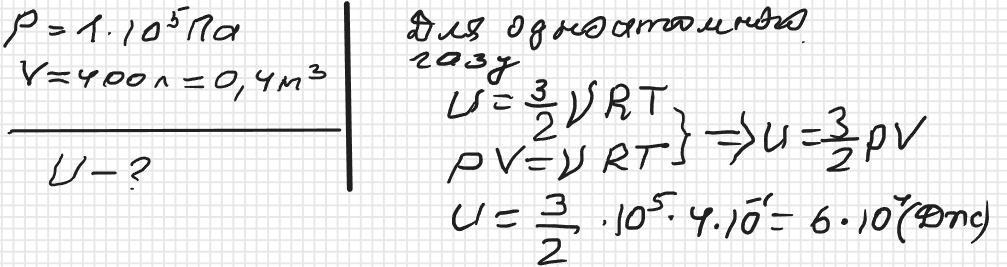 P = 1·10⁵ Па
V = 400 л = 0,4 м³
U – ?
Для одноатомного
газу
U = 3/2 ν R T
pV = ν R T } => U = 3/2 pV
U = 3/2 · 10⁵ · 4 · 10⁻¹ = 6 · 10⁴ (Дж)